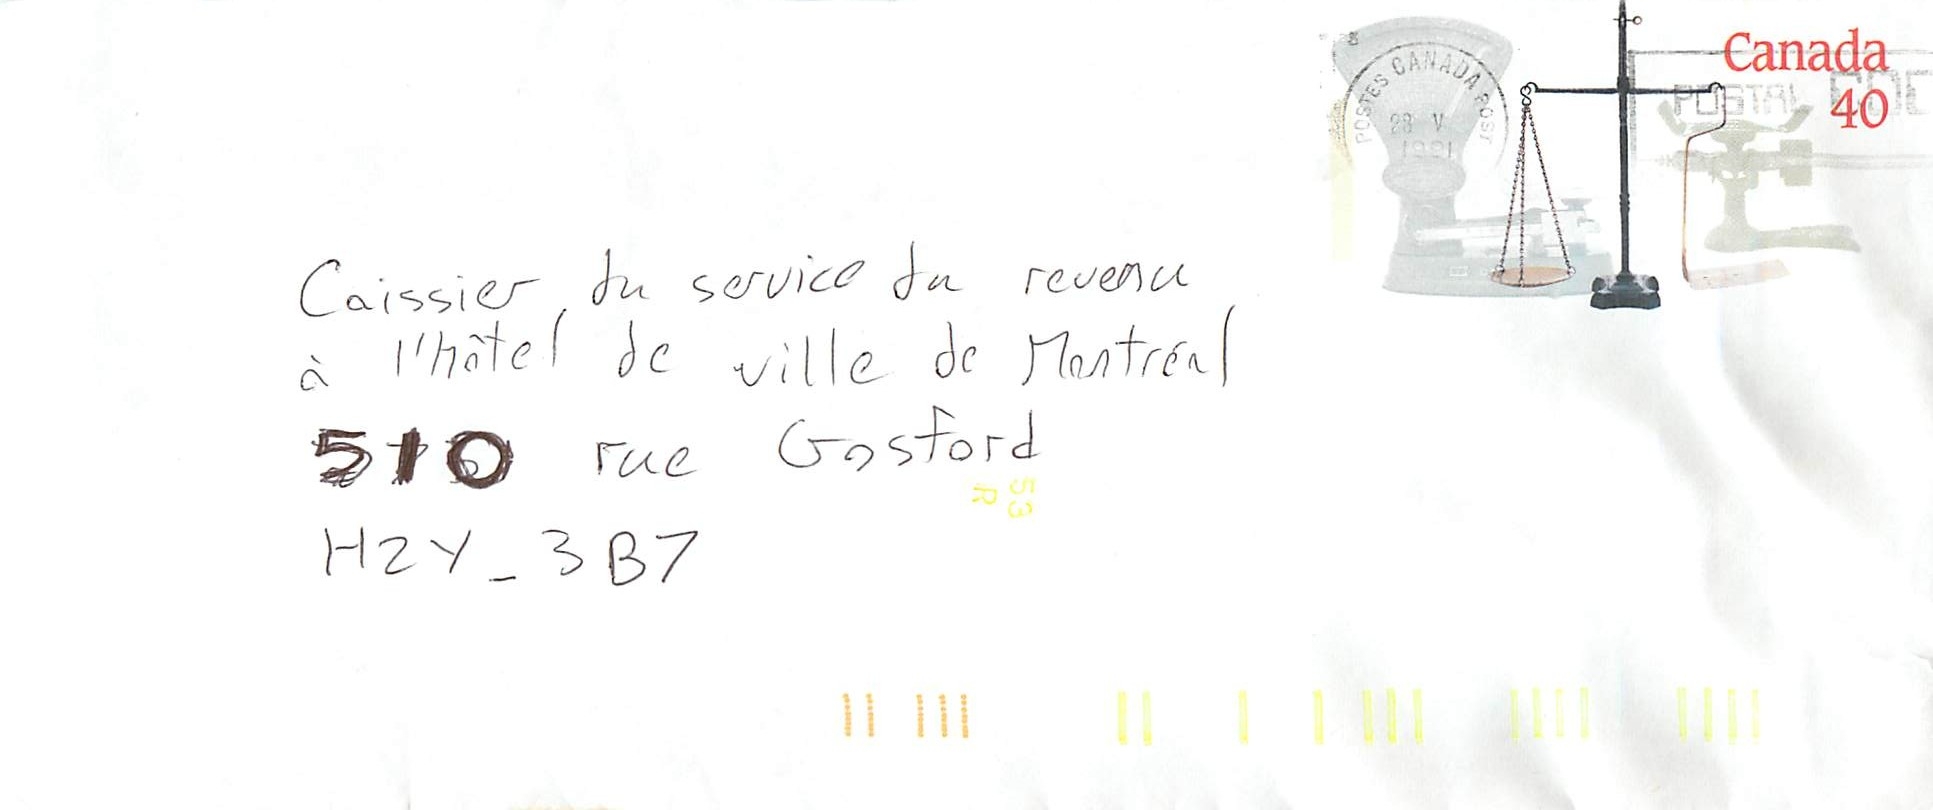 Canada
40
POSTES CANADA POST
28 V
1991
POSTAL CODE
Caissier du service du revenu
à l'hôtel de ville de Montréal
510 rue Gosford
H2Y_3B7
53
R